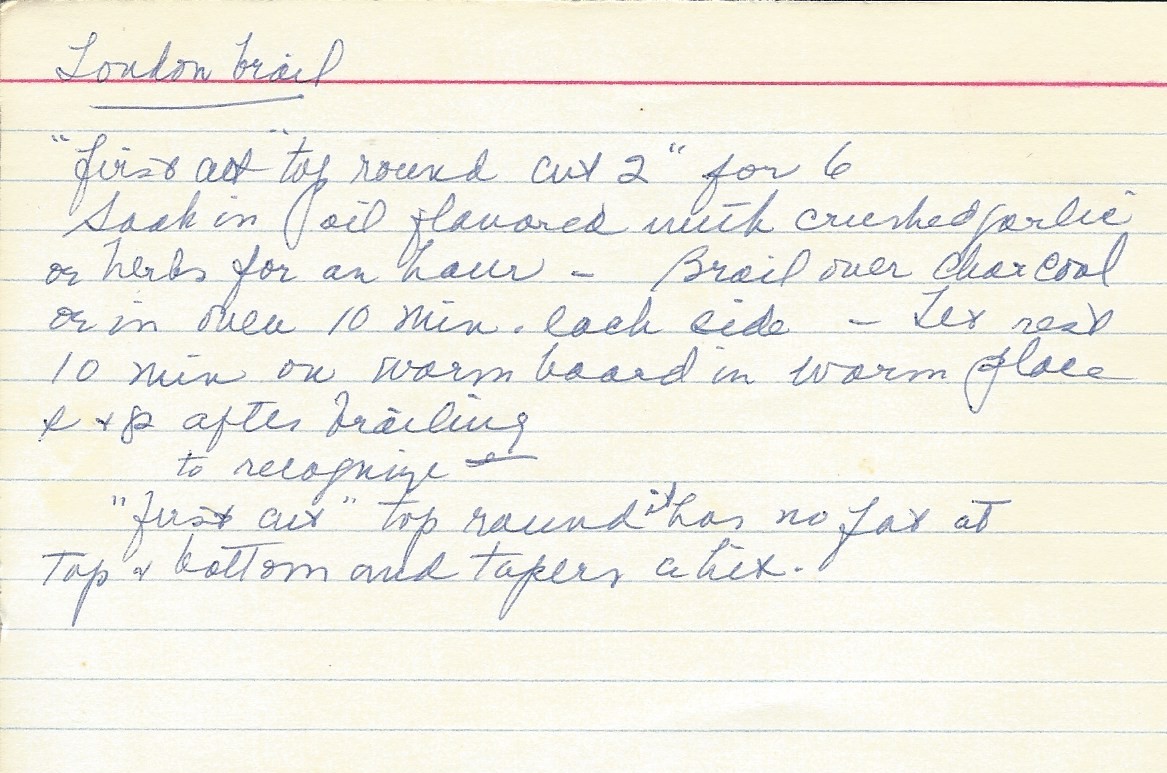 London broil
"first cut" top round cut 2" for 6
Soak in oil flavored with crushed garlic
or herbs for an hour - Broil over charcoal
or in oven 10 min. each side - Let rest
10 min on warm board in warm place
s + p after broiling
to recognize
"first cut" top round it has no fat at
top & bottom and tapers a bit.